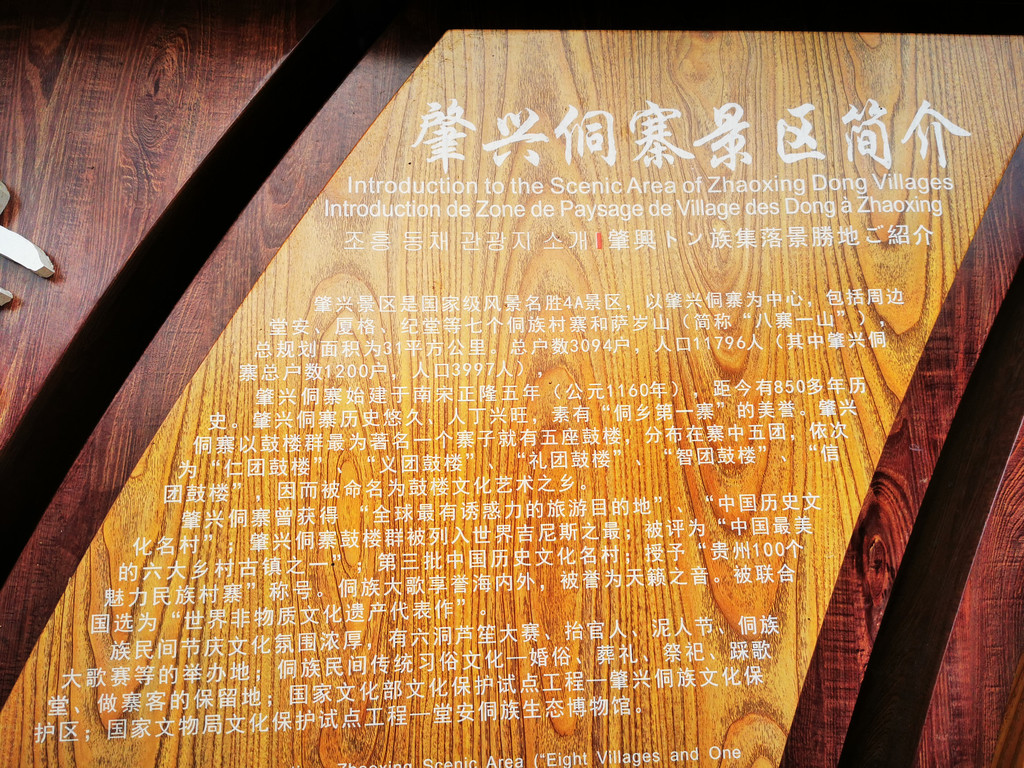 肇兴侗寨景区简介
Introduction to the Scenic Area of Zhaoxing Dong Villages
Introduction de Zone de Paysage de Village des Dong à Zhaoxing
조흥 동채 관광지 소개 肇興トン族集落景勝地ご紹介
肇兴景区是国家级风景名胜4A景区，以肇兴侗寨为中心，包括周边
堂安、厦格、纪堂等七个侗族村寨和萨岁山（简称“八寨一山”），
总规划面积为31平方公里。总户数3094户，人口11796人（其中肇兴侗
寨总户数1200户，人口3997人），
肇兴侗寨始建于南宋正隆五年（公元1160年），距今有850多年历
史。肇兴侗寨历史悠久、人丁兴旺，素有“侗乡第一寨”的美誉。肇兴
侗寨以鼓楼群最为著名一个寨子就有五座鼓楼，分布在寨中五团，依次
为“仁团鼓楼”、“义团鼓楼”、“礼团鼓楼”、“智团鼓楼”、“信
团鼓楼”，因而被命名为鼓楼文化艺术之乡。
肇兴侗寨曾获得“全球最有诱惑力的旅游目的地”、“中国历史文
化名村”；肇兴侗寨鼓楼群被列入世界吉尼斯之最；被评为“中国最美
的六大乡村古镇之一”；第三批中国历史文化名村；授予“贵州100个
魅力民族村寨”称号。侗族大歌享誉海内外，被誉为天籁之音。被联合
国选为“世界非物质文化遗产代表作”。
族民间节庆文化氛围浓厚，有六洞芦笙大赛、抬官人、泥人节、侗族
大歌赛等的举办地；侗族民间传统习俗文化—婚俗、葬礼、祭祀、踩歌
堂、做寨客的保留地；国家文化部文化保护试点工程—肇兴侗族文化保
护区；国家文物局文化保护试点工程—堂安侗族生态博物馆。
Zhaoxing Scenic Area (“Eight Villages and One